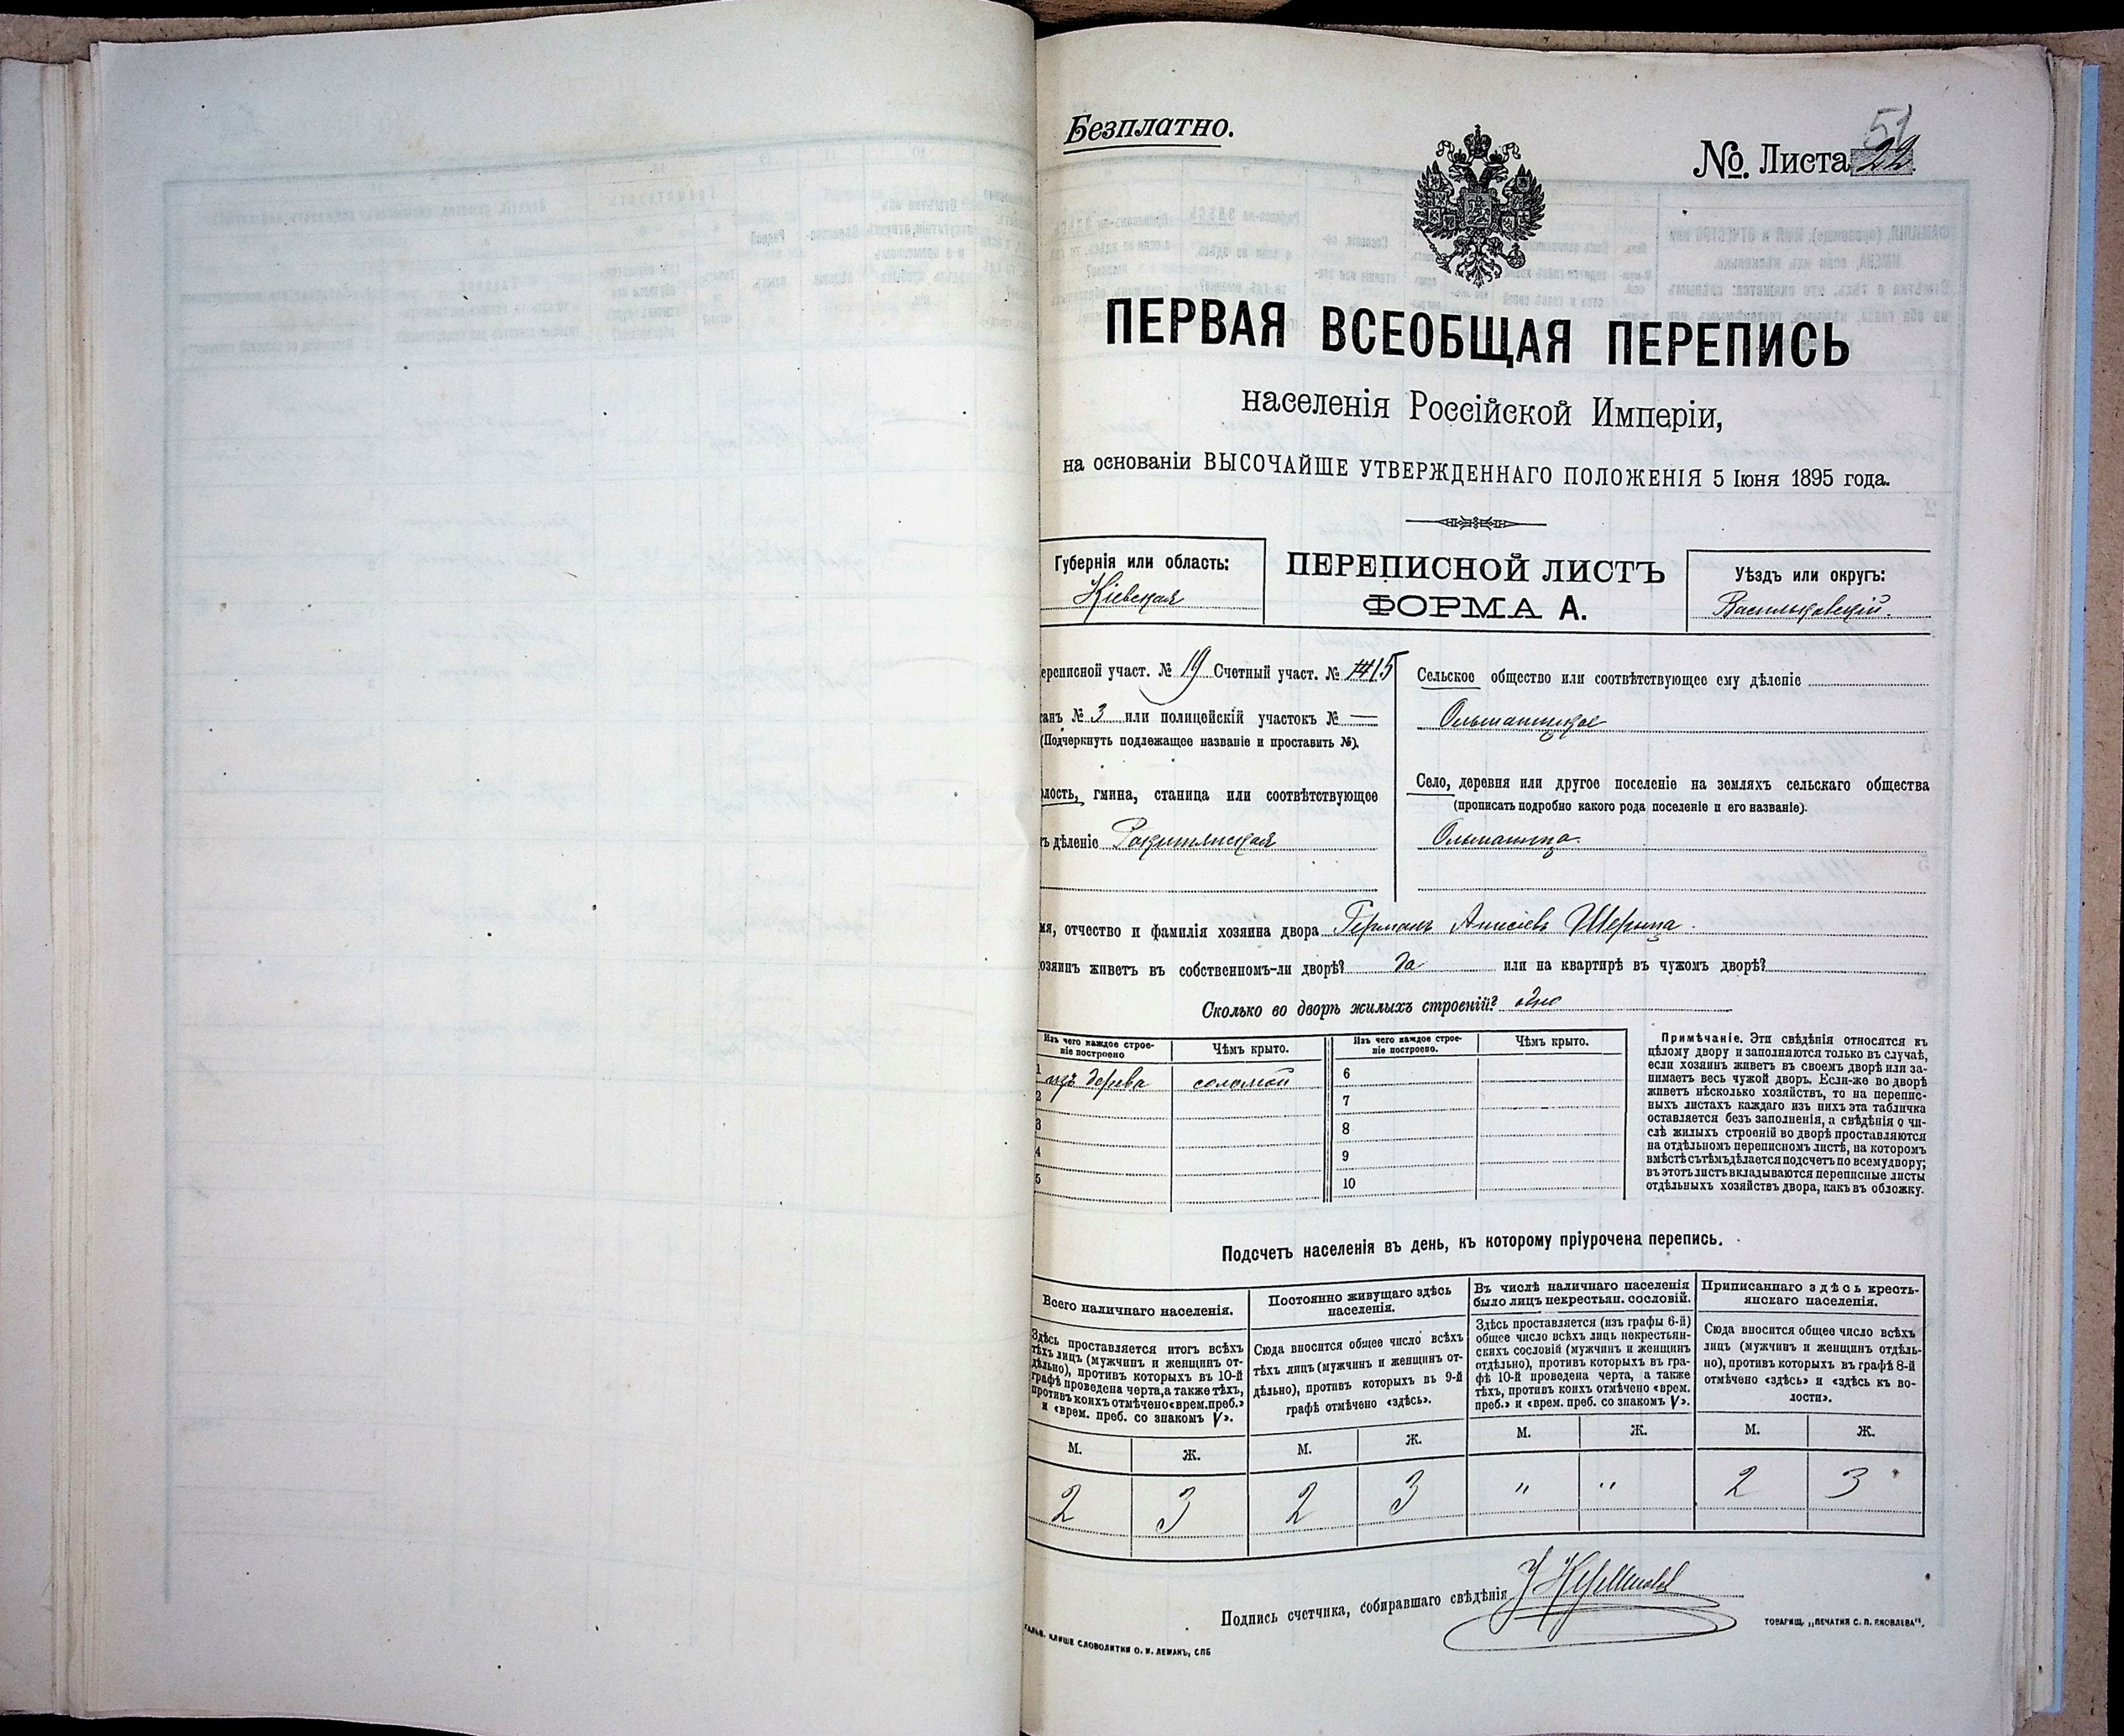 Безплатно.
51
№. Листа 22
ПЕРВАЯ ВСЕОБЩАЯ ПЕРЕПИСЬ
населенія Россійской Имперіи,
на основаніи ВЫСОЧАЙШЕ УТВЕРЖДЕННАГО ПОЛОЖЕНІЯ 5 Іюня 1895 года.
Губернія или область:
Кіевская
ПЕРЕПИСНОЙ ЛИСТЪ
ФОРМА А.
Уѣздъ или округъ:
Васильковскій.
ереписной участ. № 19 Счетный участ. № 15
танъ № 3 или полицейскій участокъ № —
(Подчеркнуть подлежащее названіе и проставить №).
олость, гмина, станица или соотвѣтствующее
ъ дѣленіе Ракитянская
Сельское общество или соотвѣтствующее ему дѣленіе
Ольшаницкое
Село, деревня или другое поселеніе на земляхъ сельскаго общества
(прописать подробно какого рода поселеніе и его названіе).
Ольшаница.
мя, отчество и фамилія хозяина двора Германъ Анисіевъ Шерыца.
озяинъ живетъ въ собственномъ-ли дворѣ? да или на квартирѣ въ чужомъ дворѣ?
Сколько во дворѣ жилыхъ строеній? одно
Изъ чего каждое строе-
ніе построено
Чѣмъ крыто.
Изъ чего каждое строе-
ніе построено.
Чѣмъ крыто.
1 изъ дерева соломой
2
3
4
5
6
7
8
9
10
Примѣчаніе. Эти свѣдѣнія относятся къ
цѣлому двору и заполняются только въ случаѣ,
если хозяинъ живетъ въ своемъ дворѣ или за-
нимаетъ весь чужой дворъ. Если-же во дворѣ
живетъ нѣсколько хозяйствъ, то на перепис-
ныхъ листахъ каждаго изъ нихъ эта табличка
оставляется безъ заполненія, а свѣдѣнія о чи-
слѣ жилыхъ строеній во дворѣ проставляются
на отдѣльномъ переписномъ листѣ, на которомъ
вмѣстѣ съ тѣмъ дѣлается подсчетъ по всему двору;
въ этотъ листъ вкладываются переписные листы
отдѣльныхъ хозяйствъ двора, какъ въ обложку.
Подсчетъ населенія въ день, къ которому пріурочена перепись.
Всего наличнаго населенія.
Здѣсь проставляется итогъ всѣхъ
тѣхъ лицъ (мужчинъ и женщинъ от-
дѣльно), противъ которыхъ въ 10-й
графѣ проведена черта, а также тѣхъ,
противъ коихъ отмѣчено «врем. преб.»
и «врем. преб. со знакомъ V».
М. Ж.
2 3
Постоянно живущаго здѣсь
населенія.
Сюда вносится общее число всѣхъ
тѣхъ лицъ (мужчинъ и женщинъ от-
дѣльно), противъ которыхъ въ 9-й
графѣ отмѣчено «здѣсь».
М. Ж.
2 3
Въ числѣ наличнаго населенія
было лицъ некрестьян. сословій.
Здѣсь проставляется (изъ графы 6-й)
общее число всѣхъ лицъ некрестьян-
скихъ сословій (мужчинъ и женщинъ
отдѣльно), противъ которыхъ въ гра-
фѣ 10-й проведена черта, а также
тѣхъ, противъ коихъ отмѣчено «врем.
преб.» и «врем. преб. со знакомъ V».
М. Ж.
" "
Приписаннаго здѣсь кресть-
янскаго населенія.
Сюда вносится общее число всѣхъ
лицъ (мужчинъ и женщинъ отдѣль-
но), противъ которыхъ въ графѣ 8-й
отмѣчено «здѣсь» и «здѣсь къ во-
лости».
М. Ж.
2 3
Подпись счетчика, собиравшаго свѣдѣнія
ГАЛЬВ. КЛИШЕ СЛОВОЛИТНИ О. И. ЛЕМАНЪ, СПБ
ТОВАРИЩ. „ПЕЧАТНЯ С. П. ЯКОВЛЕВА".